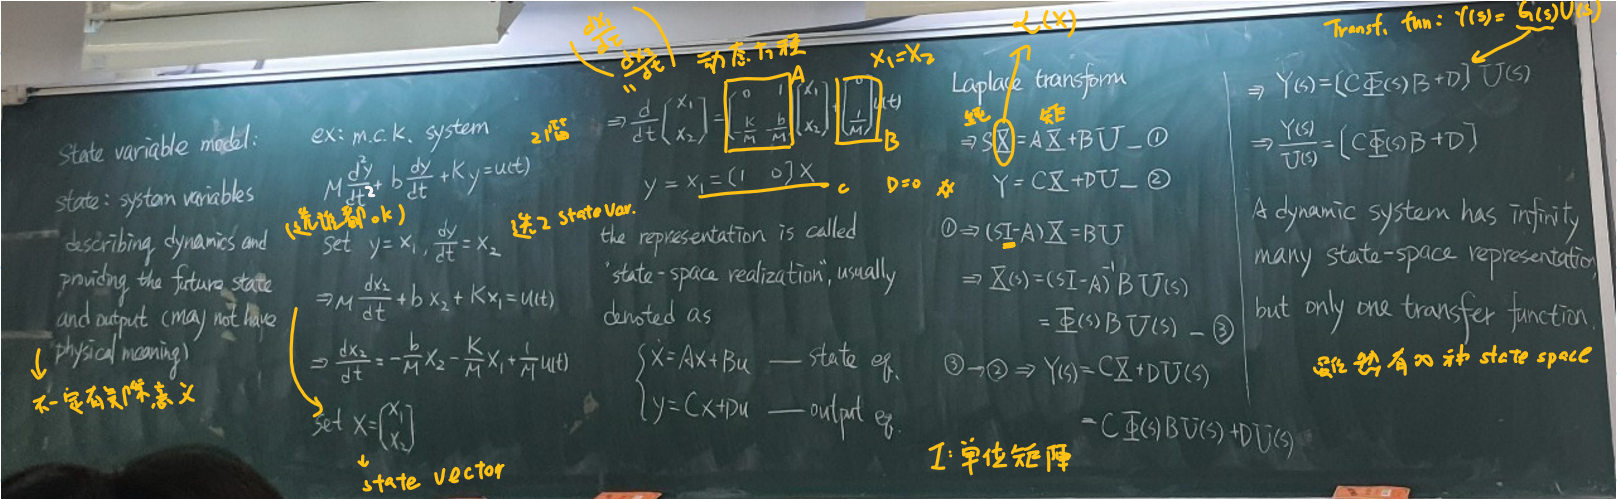 State variable model:
state: system variables
describing dynamics and
providing the future state
and output (may not have
physical meaning)
↓
不一定有实际意义
ex: m.c.k. system
2阶
M d²y/dt² + b dy/dt + Ky = u(t)
(选谁都ok)
选2 State Var.
Set y = x₁, dy/dt = x₂
⇒ M dx₂/dt + b x₂ + Kx₁ = u(t)
⇒ dx₂/dt = -b/M x₂ - K/M x₁ + 1/M u(t)
Set X = [x₁ x₂]
↓
state vector
(dx₁/dt dx₂/dt)
"
动态方程
A
x₁=x₂
⇒ d/dt (x₁ x₂) = [0 1 -K/M -b/M] (x₁ x₂) + (0 1/M) u(t)
B
y = x₁ = (1 0) X
C D=0
the representation is called
"state-space realization", usually
denoted as
{ ẋ = Ax + Bu — state eq.
y = Cx + Du — output eq.
ℒ(X)
Laplace transform
矩
⇒ SX = AX + BU — ①
Y = CX + DU — ②
① ⇒ (SI-A) X = BU
⇒ X(s) = (SI-A)⁻¹ B U(s)
= Φ(s) B U(s) — ③
③→② ⇒ Y(s) = CX + DU(s)
= C Φ(s) B U(s) + D U(s)
I: 单位矩陣
Transf. fnn: Y(s) = G(s)U(s)
⇒ Y(s) = [CΦ(s)B+D] U(s)
⇒ Y(s)/U(s) = [CΦ(s)B+D]
A dynamic system has infinity
many state-space representation,
but only one transfer function.
虽然有∞种 state space